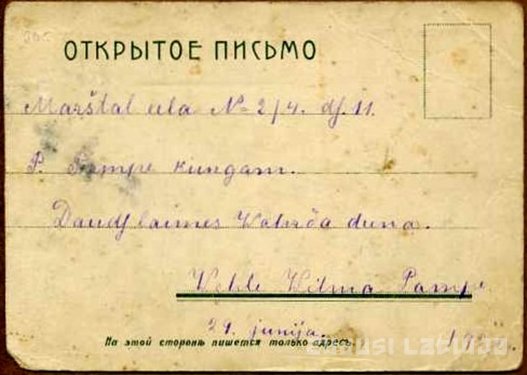 ОТКРЫТОЕ ПИСЬМО
Marštal iela № 2/4. dz. 11.
P. Pampe kungam.
Daudz laimes Wahrda deenā.
Wilma Pampe
29. junija.
На этой сторонѣ пишется только адресъ.
ZUDUSI LATVIJA